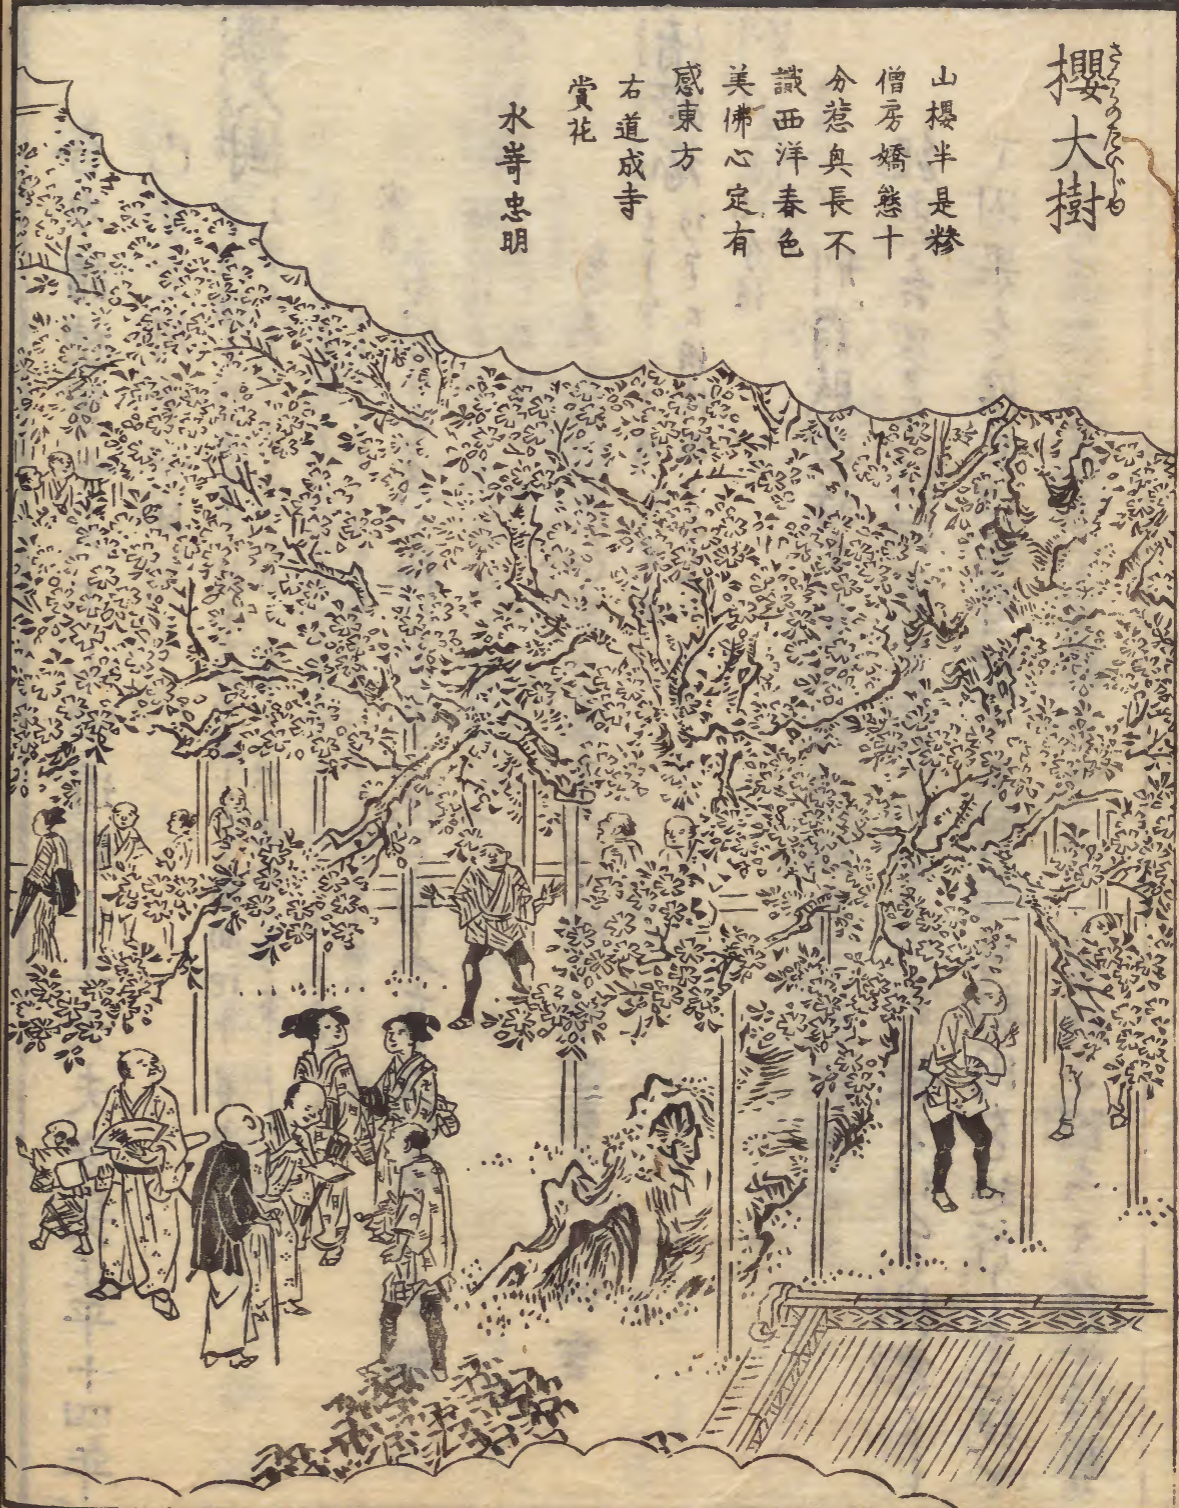 櫻大樹
さくらのたいじゆ
山櫻半是糝
僧房嬌態十
分惹興長不
識西洋春色
美佛心定有
感東方
右道成寺
賞花
水嵜忠明